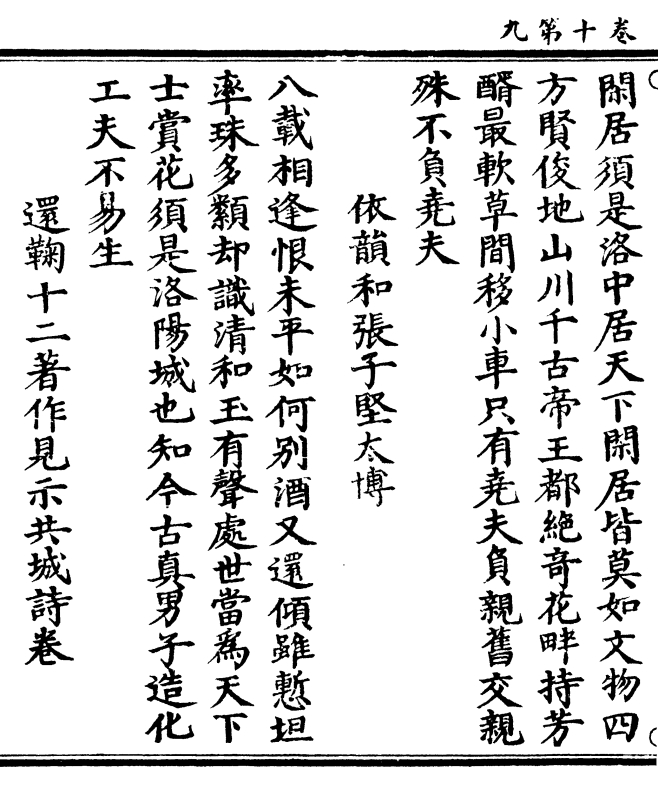 卷十第九
閑居須是洛中居天下閑居皆莫如文物四
方賢俊地山川千古帝王都絶竒花畔持芳
醑最軟草間移小車只有堯夫負親舊交親
殊不負堯夫
依韻和張子堅太博
八載相逢恨未平如何别酒又還傾雖慙坦
率珠多纇却識清和玉有聲處世當爲天下
士賞花須是洛陽城也知今古真男子造化
工夫不易生
還鞠十二著作見示共城詩卷